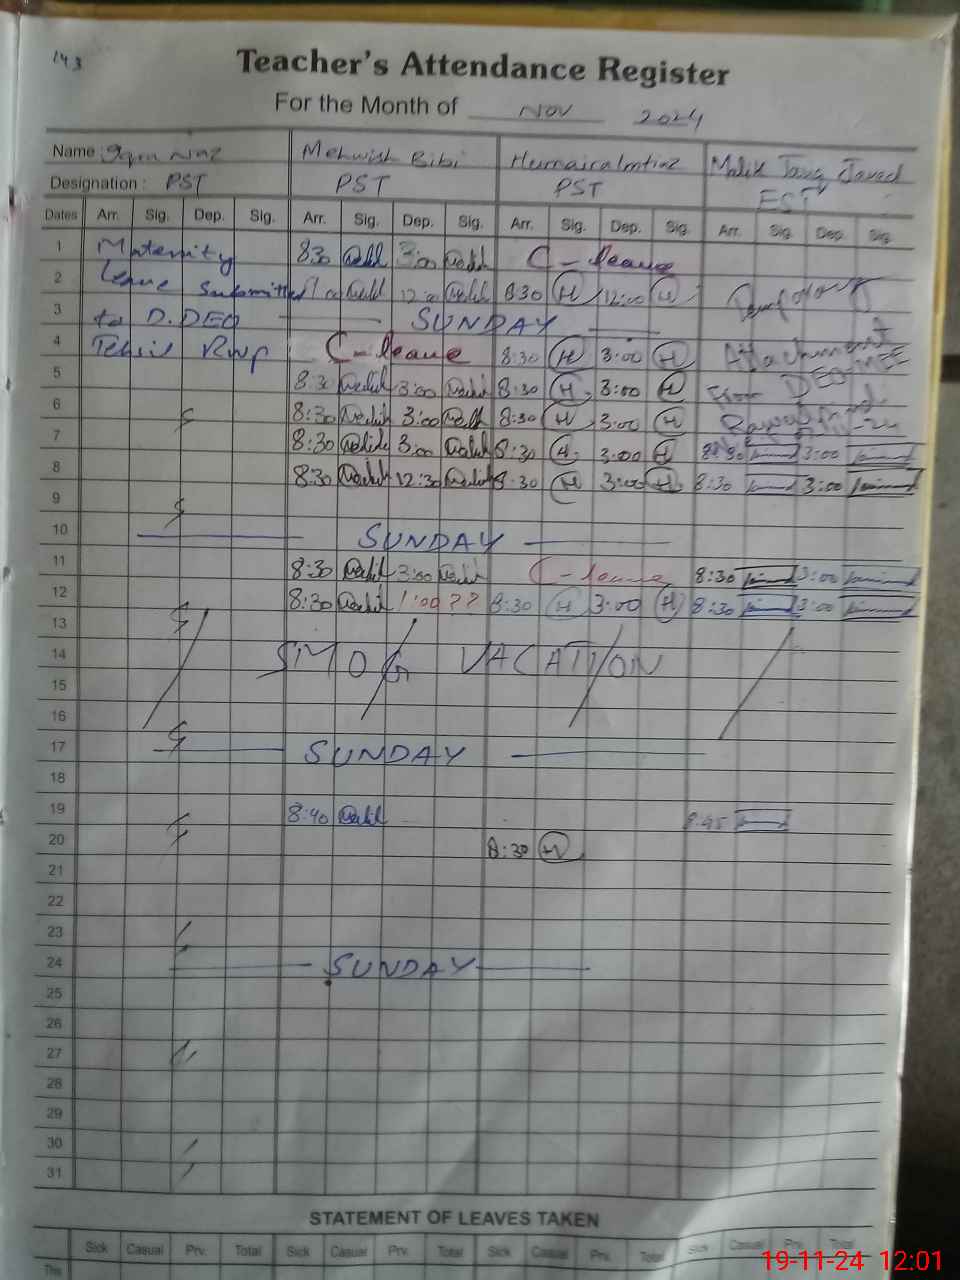 143
Teacher's Attendance Register
For the Month of Nov 2024
Name Iqra Naz Mehwish Bibi Humaira Imtiaz Malik Javed
Designation : PST PST PST EST
Dates Arr. Sig. Dep. Sig. Arr. Sig. Dep. Sig. Arr. Sig. Dep. Sig. Arr. Sig. Dep. Sig.
1 Maternity 8:30 3:00 C-leave
2 Leave Submitted 12:00 8:30 H 12:00 H Temporary
3 to D.DEO SUNDAY
4 Tehsil Rwp C-leave 8:30 H 3:00 H Attachment
5 8:30 3:00 8:30 H 3:00 H From DEO-MEE
6 8:30 3:00 8:30 H 3:00 H Rawalpindi
7 8:30 3:00 8:30 H 3:00 H 8:30 3:00
8 8:30 12:30 8:30 H 3:00 H 8:30 3:00
9
10 SUNDAY
11 8:30 3:00 C-leave 8:30 3:00
12 8:30 1:00?? 8:30 H 3:00 H 8:30 3:00
13
14 SMOG VACATION
15
16
17 SUNDAY
18
19 8:40 8:45
20 8:30 H
21
22
23
24 SUNDAY
25
26
27
28
29
30
31
STATEMENT OF LEAVES TAKEN
Sick Casual Prv. Total Sick Casual Prv. Total Sick Casual Prv. Total Sick Casual Prv. Total
This
19-11-24 12:01